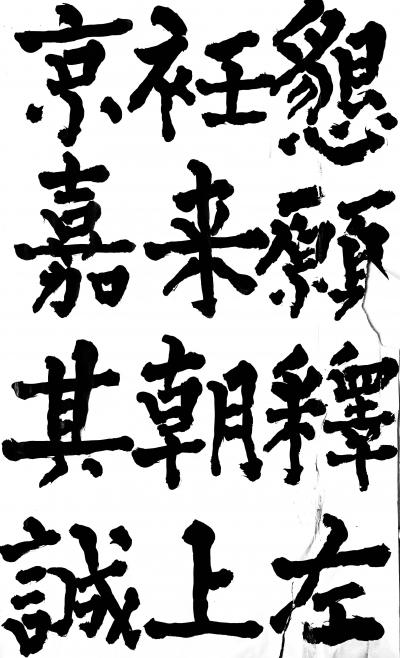 懇願釋左
衽来朝上
京嘉其誠